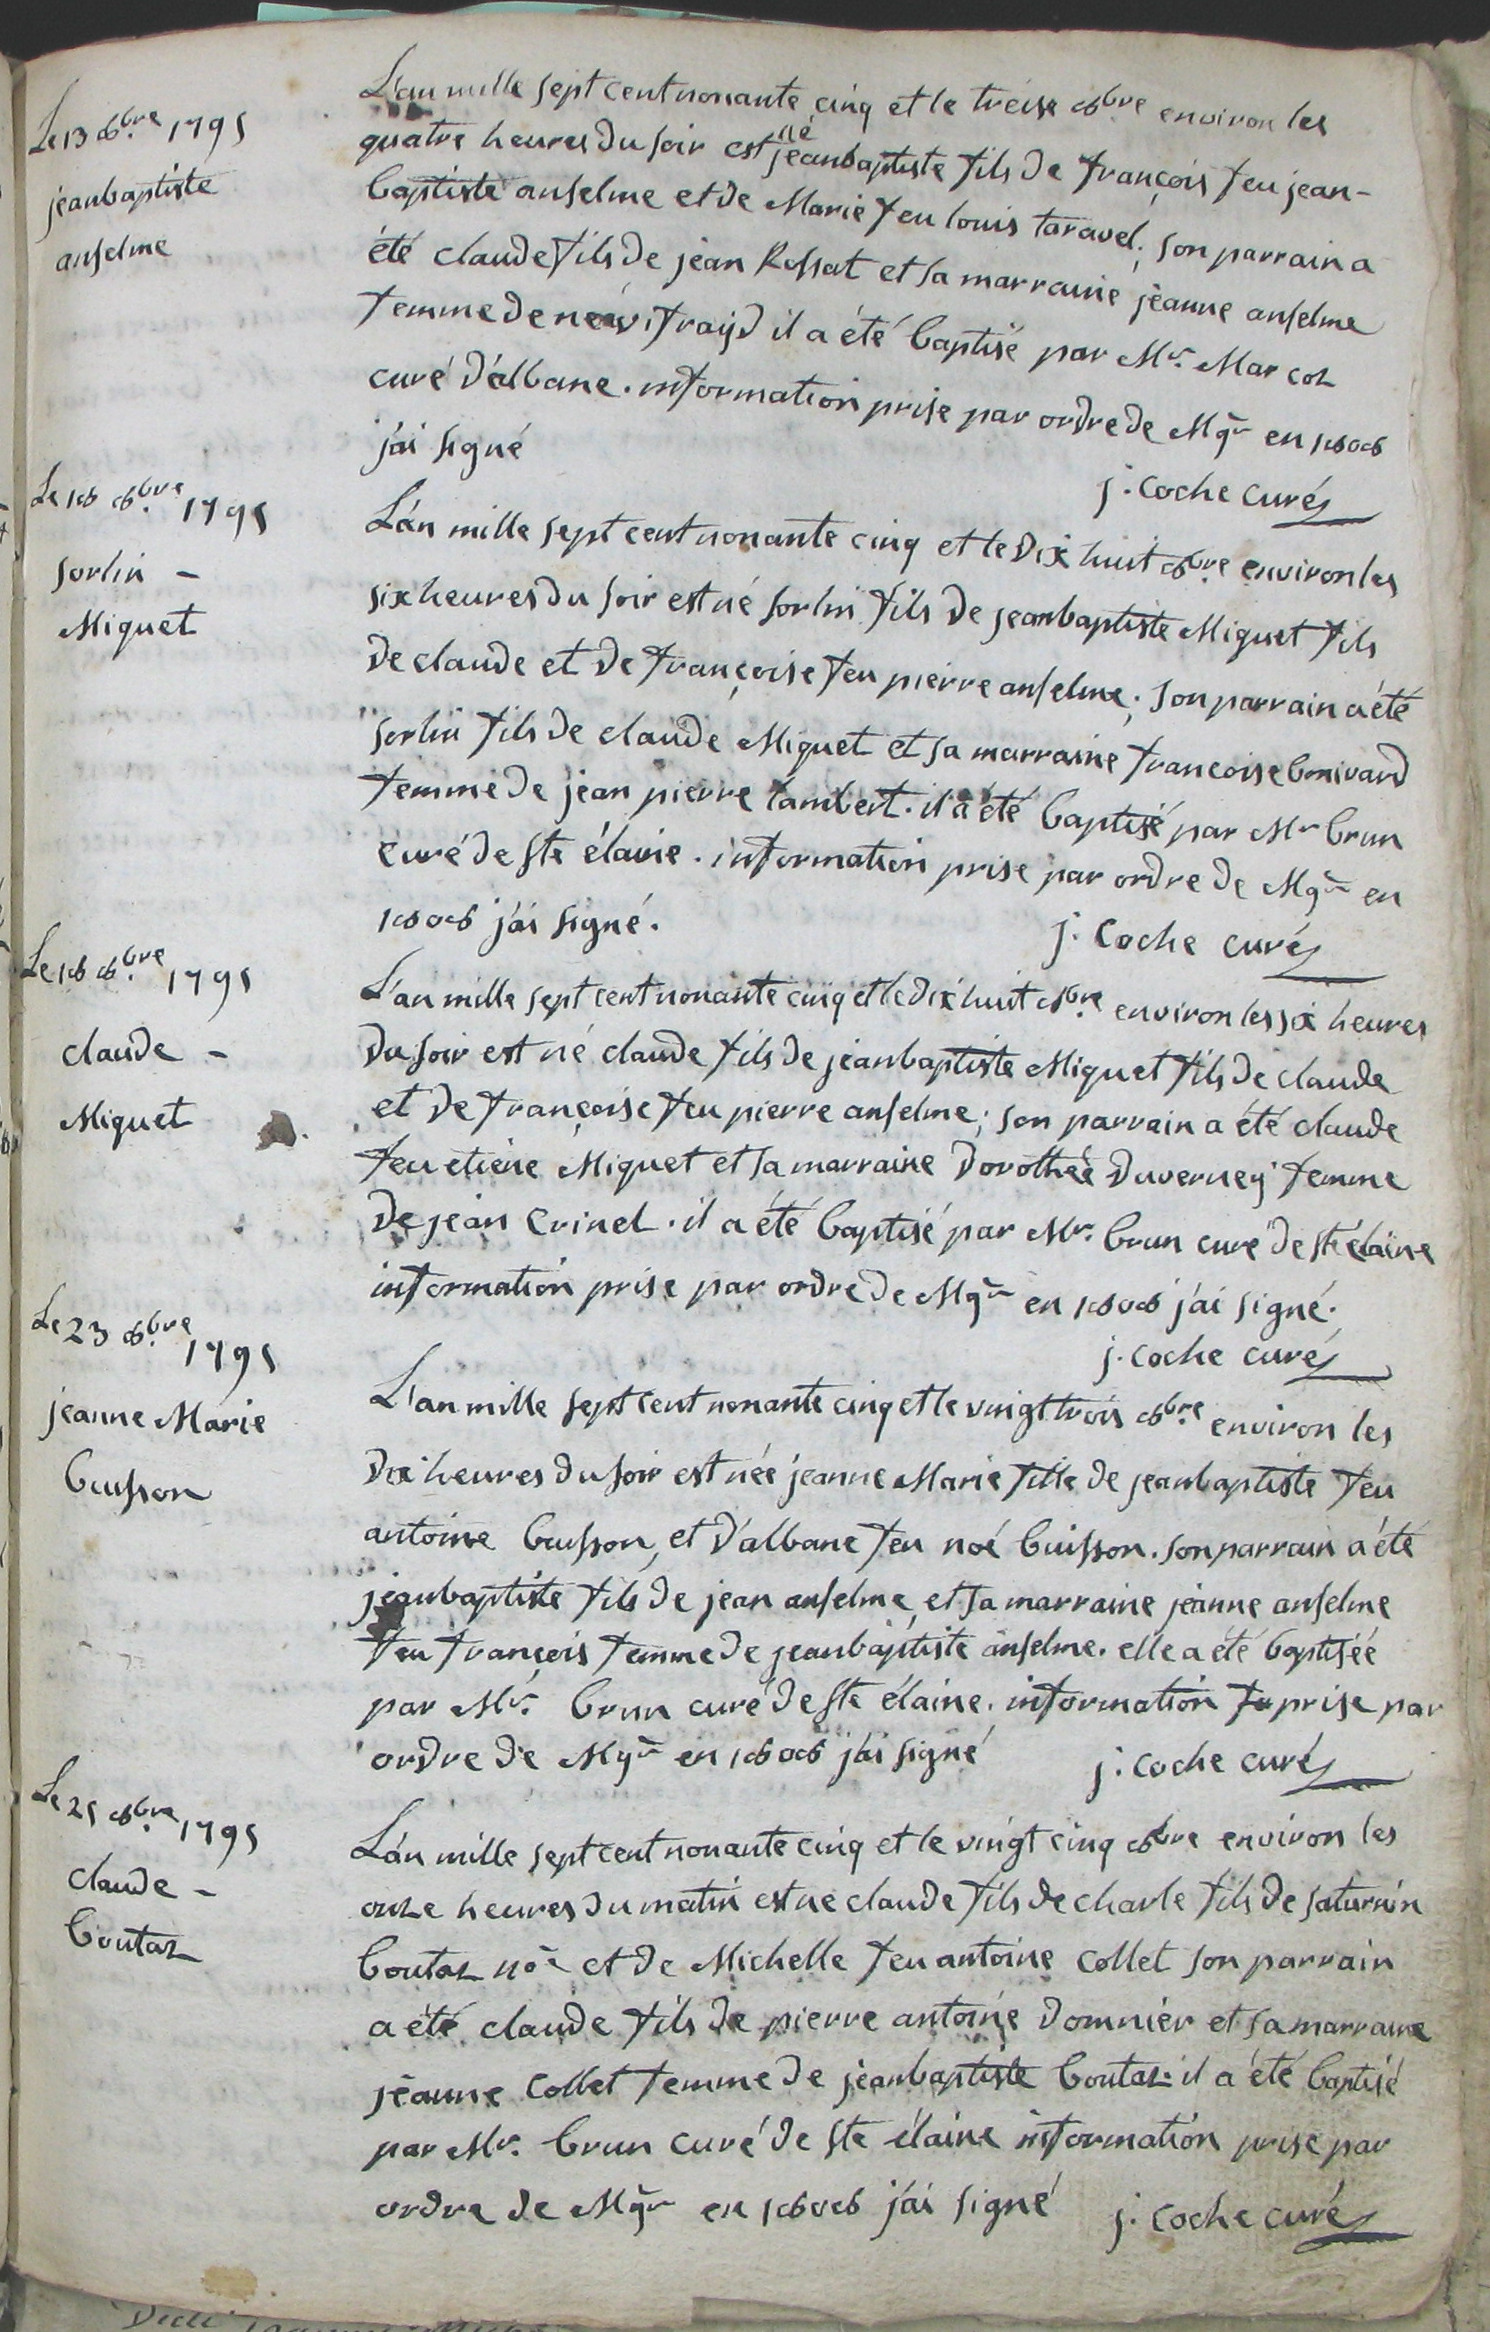 Le 13 8bre 1795
jeanbaptiste
anselme
L'an mille sept cent nonante cinq et le treise 8bre environ les
quatre heures du soir est né jeanbaptiste fils de françois feu jean-
baptiste anselme et de Marie feu louis taravel; son parrain a
été claude fils de jean Rossat et sa marraine jeanne anselme
femme de frayd il a été baptisé par Mr. Marcoz
curé d'albane. information prise par ordre de Mgr en 1808
j'ai signé
j. Coche curé
Le 18 8bre 1795
sorlin -
Miquet
L'an mille sept cent nonante cinq et le dix huit 8bre environ les
six heures du soir est né sorlin fils de jeanbaptiste Miquet fils
de claude et de françoise feu pierre anselme; son parrain a été
sorlin fils de claude Miquet et sa marraine francoise bonivard
femme de jean pierre lambert. il a été baptisé par Mr brun
curé de ste élaine. information prise par ordre de Mgr en
1808 j'ai signé.
j. Coche curé
Le 18 8bre 1795
claude -
Miquet
L'an mille sept cent nonante cinq et le dix huit 8bre environ les six heures
du soir est né claude fils de jeanbaptiste Miquet fils de claude
et de françoise feu pierre anselme; son parrain a été claude
feu etiene Miquet et sa marraine dorothée duverney femme
de jean Crinel. il a été baptisé par Mr. brun curé de ste élaine
information prise par ordre de Mgr en 1808 j'ai signé.
j. Coche curé
Le 23 8bre 1795
jeanne Marie
buisson
L'an mille sept cent nonante cinq et le vingt trois 8bre environ les
dix heures du soir est née jeanne Marie fille de jeanbaptiste feu
antoine buisson, et d'albane feu noé buisson. son parrain a été
jeanbaptiste fils de jean anselme, et sa marraine jeanne anselme
feu françois femme de jeanbaptiste anselme. elle a été baptisée
par Mr. brun curé de ste élaine. information prise par
ordre de Mgr en 1808 j'ai signé
j. Coche curé
Le 25 8bre 1795
claude -
boutaz
L'an mille sept cent nonante cinq et le vingt cinq 8bre environ les
onze heures du matin est né claude fils de charle fils de saturnin
boutaz nore et de Michelle feu antoine Collet son parrain
a été claude fils de pierre antoine domnier et sa marraine
jeanne Collet femme de jeanbaptiste boutaz. il a été baptisé
par Mr. brun curé de ste élaine information prise par
ordre de Mgr en 1808 j'ai signé
j. Coche curé